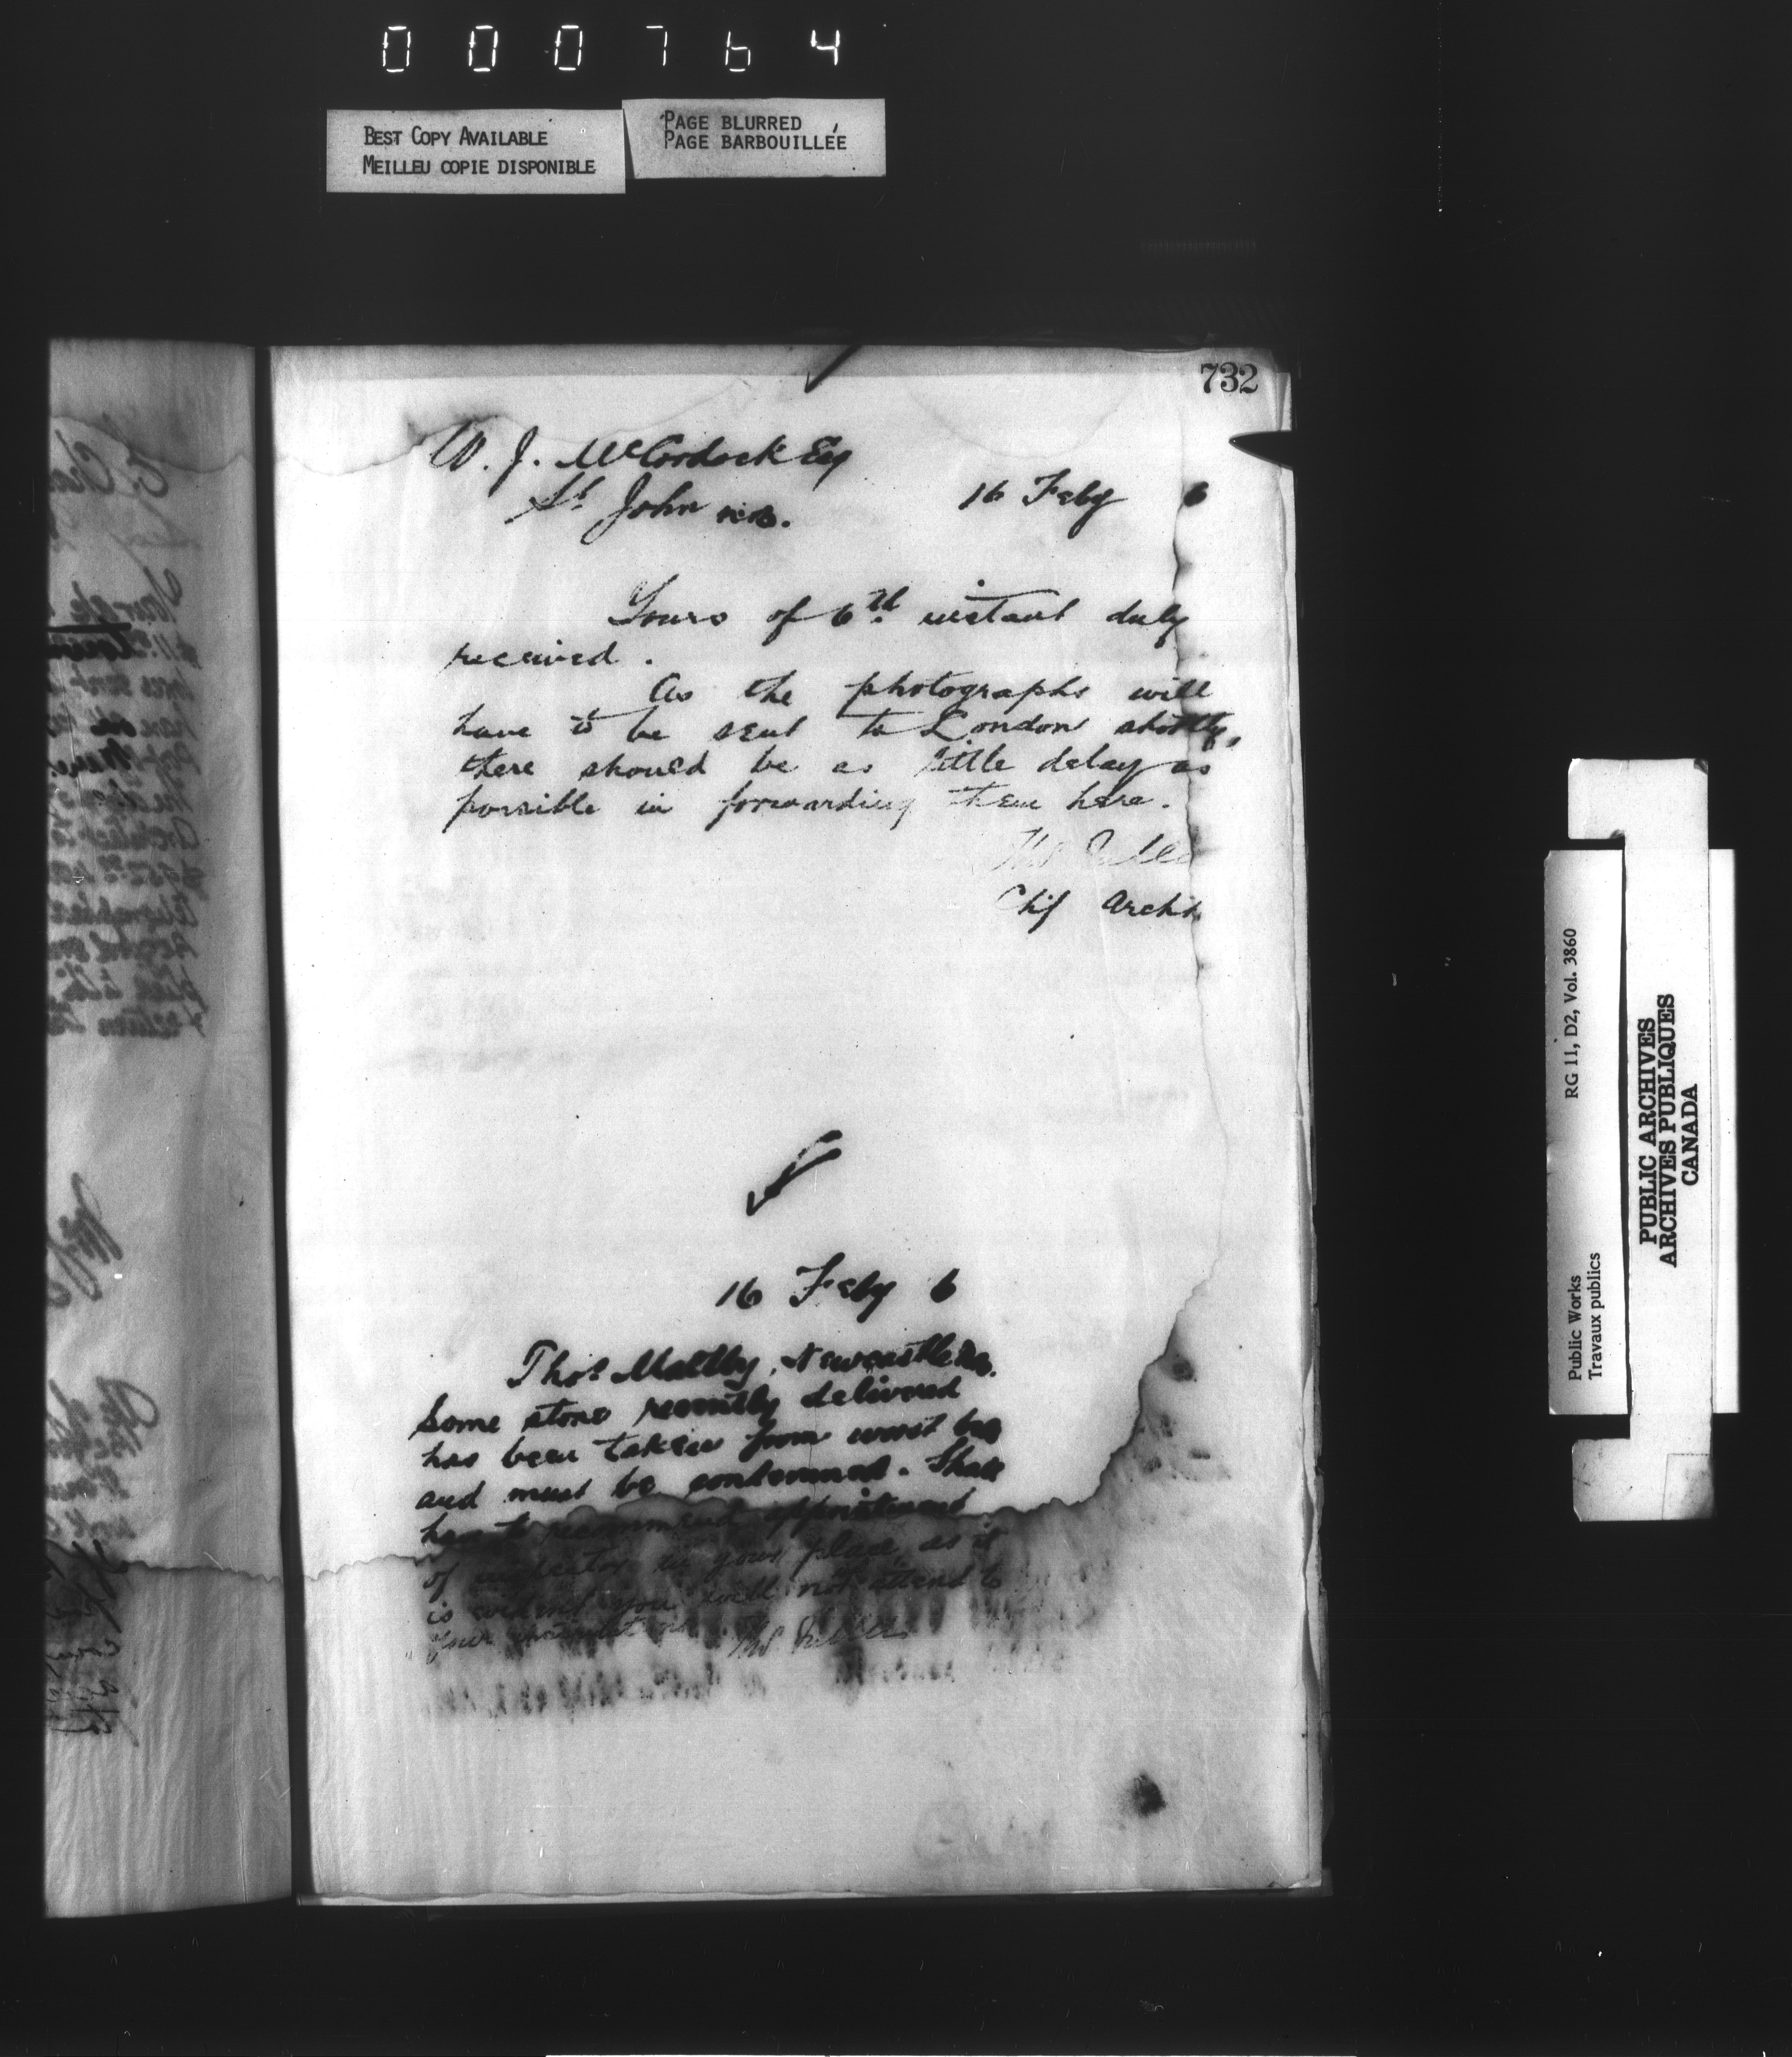 000764
BEST COPY AVAILABLE
MEILLEU COPIE DISPONIBLE
PAGE BLURRED
PAGE BARBOUILLÉE
732
W. J. McCordock Esq
St John N.B.
16 Feby 6
Yours of 6th instant duly
received.
As the photographs will
have to be sent to London shortly,
there should be as little delay as
possible in forwarding them here.
Thos Fuller
Chf Archt
16 Feby 6
Thos Maltby, Newcastle N.B.
Some stone recently delivered
has been taken from worst bed
and must be condemned. Shall
have to recommend appointment
of inspector in your place, as it
is evident you will not attend to
your instructions. Thos Fuller
Public Works
Travaux publics
RG 11, D2, Vol. 3860
PUBLIC ARCHIVES
ARCHIVES PUBLIQUES
CANADA